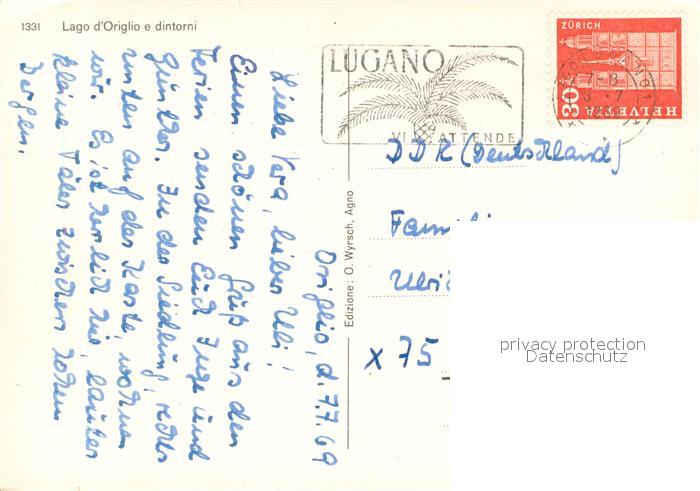 1331 Lago d'Origlio e dintorni
Origlio, d. 7.7.69
Liebe Vera, lieber Ulli!
Einen schönen Gruß aus den
Ferien senden Euch Inge und
Günther. In der Siedlung, rechts
unten auf der Karte, wohnen
wir. Es ist herrlich hier, lauter
kleine Täler zwischen hohen
Bergen.
Edizione: O. Wyrsch, Agno
LUGANO
VI ATTENDE
ZÜRICH
30
HELVETIA
DDR (Deutschland)
Famili
Ulri
x 75
privacy protection
Datenschutz